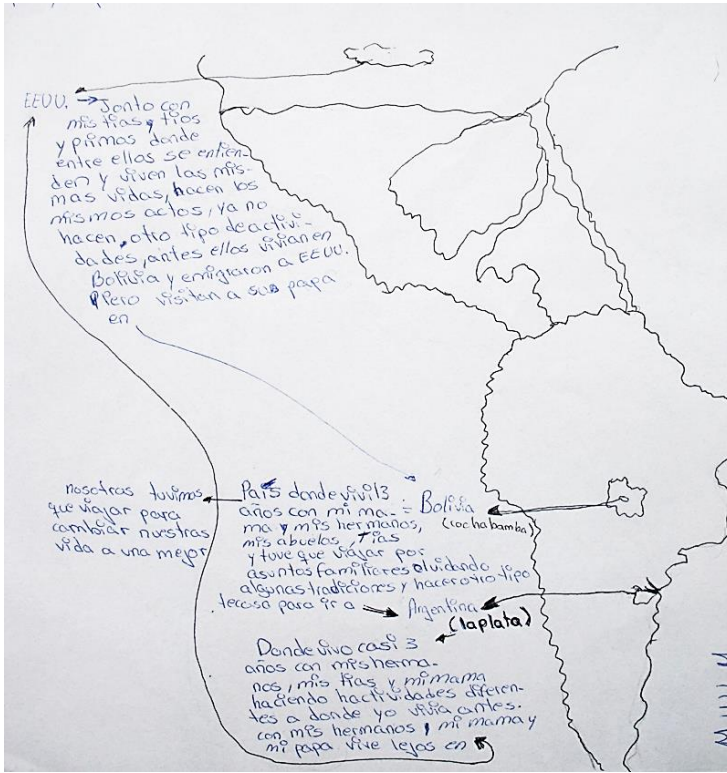 EEUU. → Jonto con
mis tias y tios
y primos donde
entre ellos se entien-
den y viven las mis-
mas vidas, hacen los
mismos actos, ya no
hacen, otro tipo de activi-
dades, antes ellos vivian en
Bolivia y emigraron a EEUU.
Pero visitan a sus papa
en
nosotras tuvimos
que viajar para
cambiar nuestras
vida a una mejor
País donde viví 13
años con mi ma-
ma y mis hermanos,
mis abuelos, Tias
y tuve que viajar por
asuntos familiares olvidando
algunas tradiciones y hacer otro tipo
de cosa para ir a
Bolivia
(cochabamba)
Argentina
(la plata)
Donde vivo casi 3
años con mis herma-
nos, mis tias y mi mama
haciendo hactividades diferen-
tes a donde yo vivia antes.
con mis hermanos, mi mama y
mi papa vive lejos en